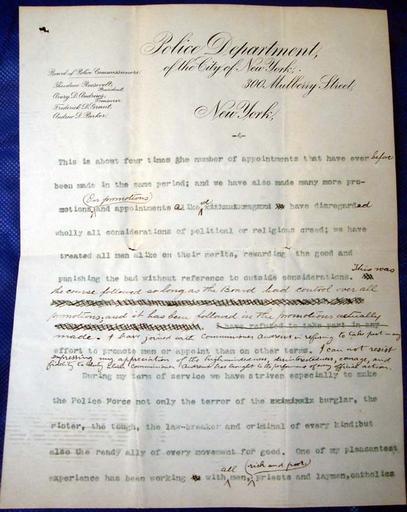 Police Department,
of the City of New York,
300 Mulberry Street,
New York,
Board of Police Commissioners:
Theodore Roosevelt,
President
Avery D. Andrews,
Treasurer
Frederick D. Grant,
Andrew D. Parker.
This is about four times the number of appointments that have ever before
been made in the same period; and we have also made many more pro-
(In promotions)
motions and appointments alike we have disregarded
wholly all considerations of political or religious creed; we have
treated all men alike on their merits, rewarding the good and
punishing the bad without reference to outside considerations. This was
the course followed so long as the Board had control over all
promotions, and it has been followed in the promotions actually
I have refused to take part in any
made. I have joined with Commissioner Andrews in refusing to take part in any
effort to promote men or appoint them on other terms. I can not resist
expressing my appreciation of the highminded disinterestedness, courage, and
fidelity to duty which Commissioner Andrews has brought to the performance of every official action.
During my term of service we have striven especially to make
the Police Force not only the terror of the burglar, the
rioter, the tough, the law-breaker and criminal of every kind; but
also the ready ally of every movement for good. One of my pleasantest
all (rich and poor)
experience has been working with men, priests and laymen, catholics